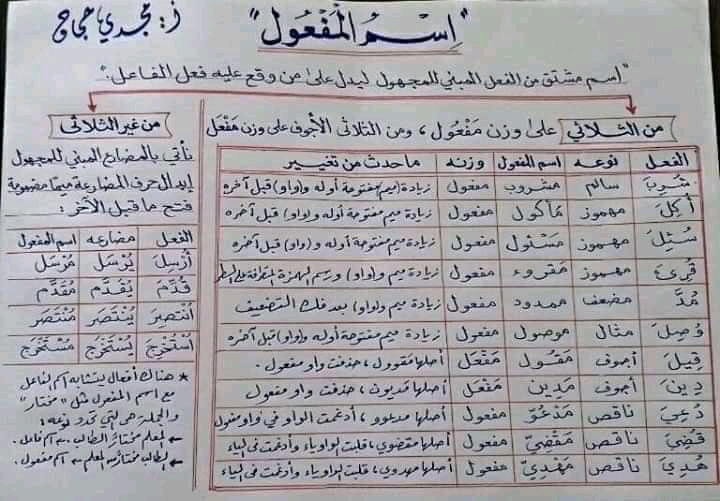 أ: مجدي حجاج
"اِسْمُ الْمَفْعُول"
"اسم مشتق من الفعل المبني للمجهول ليدل على من وقع عليه فعل الفاعل".
من الثلاثي على وزن مَفْعُول ، ومن الثلاثى الأجوف على وزن مَفْعَل
الفعل نوعه اسم المفعول وزنه ما حدث من تغيير
شُرِبَ سالم مشروب مفعول زيادة (ميم) مفتوحة أوله و(واو) قبل آخره
أُكِلَ مهموز مأكول مفعول زيادة ميم مفتوحة أوله و(واو) قبل آخره
سُئِلَ مهموز مَسْئول مفعول زيادة ميم مفتوحة أوله و (واو) قبل آخره
قُرِئَ مهموز مَقروء مفعول زيادة ميم و(واو) ورسم الهمزة المتطرفة على السطر
مُدَّ مضعف ممدود مفعول زيادة ميم و(واو) بعد فك التضعيف
وُصِلَ مثال موصول مفعول زيادة ميم مفتوحة أوله و(واو) قبل آخره
قِيلَ أجوف مَقُول مَفْعَل أصلها مقوول ، حذفت واو مفعول .
دِينَ أجوف مَدِين مَفْعَل أصلها مديون ، حذفت واو مفعول
دُعِيَ ناقص مَدْعُوّ مفعول أصلها مدعوو ، أدغمت الواو في واو مفعول
قُضِيَ ناقص مَقْضِيّ مفعول أصلها مقضوي ، قلبت الواو ياء وأدغمت فى الياء
هُدِيَ ناقص مَهْدِيّ مفعول أصلها مهدوي ، قلبت الواو ياء وأدغمت فى الياء
من غير الثلاثى
نأتي بالمضارع المبني للمجهول
إبدال حرف المضارعة ميمًا مضمومة
فتح ما قبل الآخر :
الفعل مضارعه اسم المفعول
أُرْسِلَ يُرْسَل مُرْسَل
قُدِّمَ يُقَدَّم مُقَدَّم
اُنْتُصِرَ يُنْتَصَر مُنْتَصَر
اُسْتُخْرِجَ يُسْتَخْرَج مُسْتَخْرَج
* هناك أفعال يتشابه اسم الفاعل
مع اسم المفعول مثل "مختار"
والجملة هى التي تحدد نوعه :
المعلم مختارٌ الطالب ← اسم فاعل .
الطالب مختارٌ المعلم ← اسم مفعول .